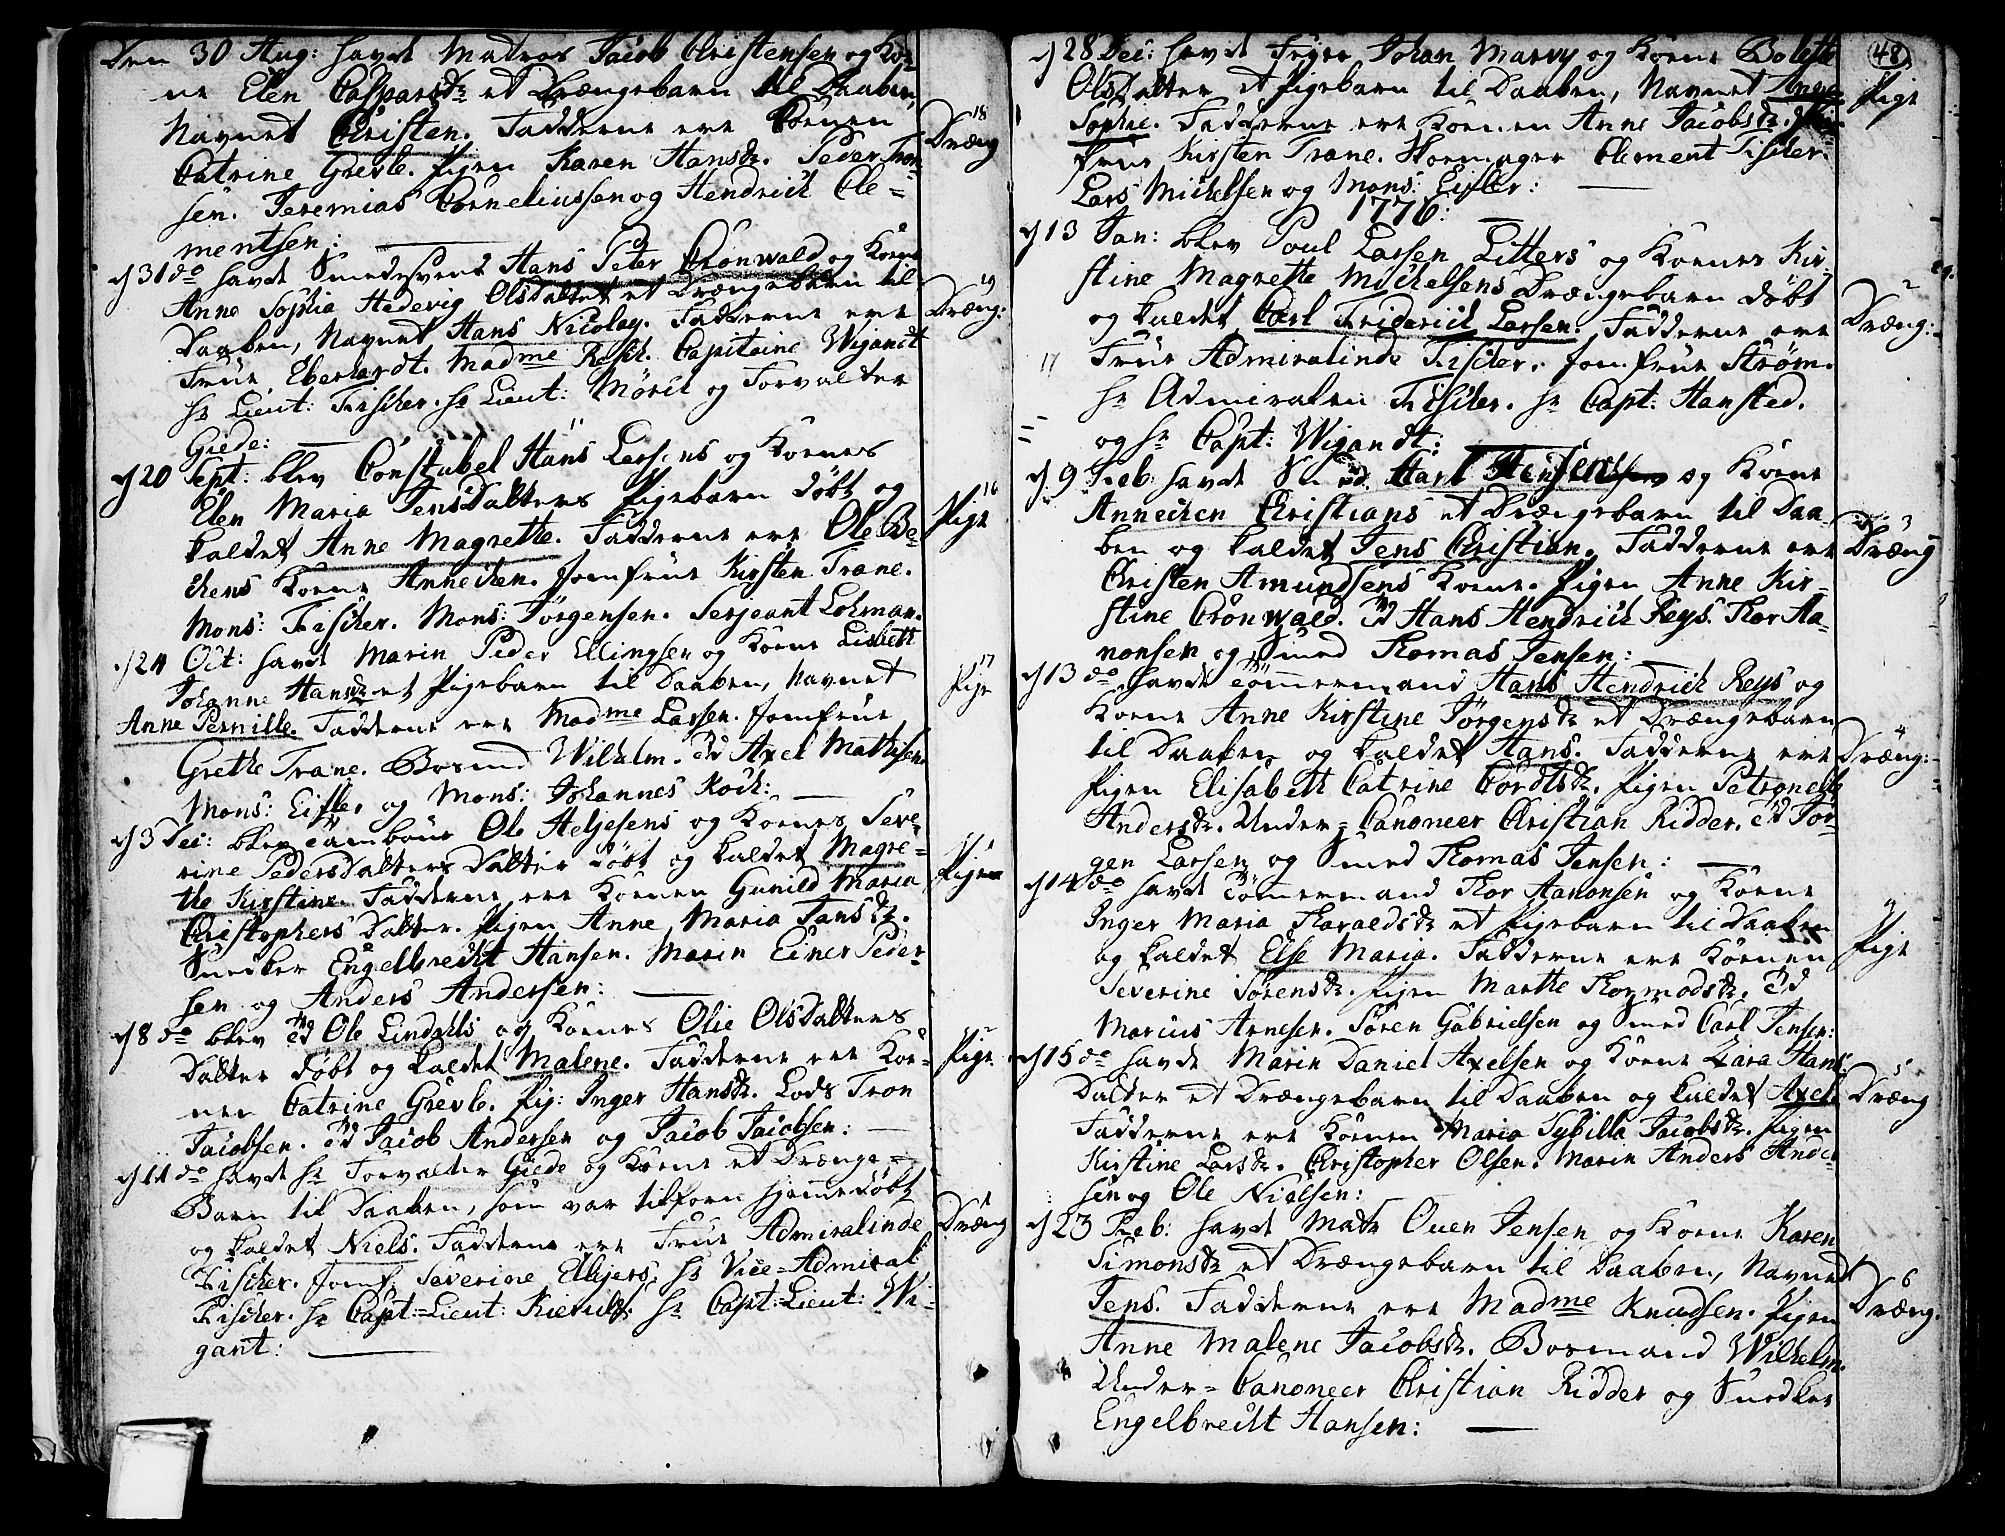 Den 30 Aug: havde Matros Jacob Christensen og Ko-
ne Elen Caspersdr et Drængebarn til Daaben,
Navnet Christen. Fadderne ere Konen
Catrine Grevle. Pigen Karen Hansdr. Peder Tron-
sen. Jeremias Corneliussen og Hendrich Cle-
mentsen:
18
Dræng
d 31 do havde Smedesvend Hans Peter Cronwald og Kone
Anne Sophia Hedevig Olsdatter et Drængebarn til
Daaben, Navnet Hans Nicolay. Fadderne ere
Frue Eberhardt. Madme Resch. Capitaine Wigandt
hr Lieut: Fischer. hr Lieut: Mörch og Forvalter
Giede:
19
Dræng:
d 20 Sept: blev Constabel Hans Larsens og Kones
Elen Maria Jensdatters Pigebarn döbt og
kaldet Anne Magrethe. Fadderne ere Ole Be-
chens Kone Annechen. Jomfrue Kirsten Trane.
Mons: Fischer. Mons: Jörgensen. Serjeant Lohman.
16
Pige
d 24 Oct: havde Marin Peder Ellingsen og Kone Lisbeth
Johanne Hansdr et Pigebarn til Daaben, Navnet
Anne Pernille. Fadderne ere Madme Larsen. Jomfrue
Grethe Trane. Bosmd Wilhelm. Axel Mathisen
Mons: Eisler og Mons: Johannes Koch:
17
Pige
d 3 Dec: blev Tambour Ole Heljesens og Kones Seve-
rine Pedersdatters Datter döbt og kaldet Magre-
the Kirstine. Fadderne ere Konen Gunild Maria
Christophers Datter. Pigen Anne Maria Jansdr.
Snedker Engelbrecht Hansen. Marin Einer Peder-
sen og Anders Andersen:
Pige
d 8 do blev Ole Lindahls og Kones Olie Olsdatters
Datter döbt og kaldet Malene. Fadderne ere Ko-
nen Catrine Grevle. Pig: Inger Hansdr. Lods Tron
Jacobsen. Jacob Andersen og Jacob Jacobsen:
Pige
d 11 do havde hr Forvalter Giede og Kone et Drænge-
Barn til Daaben, som var tilforn hjemmedöbt
og kaldet Niels. Fadderne ere Frue Admiralinde
Fischer. Jomf: Severine Elbjers. hr Vice-Admiral
Fischer. hr Capt-Lieut: Kierulf. hr Capt:Lieut: Wi-
gant:
Dræng
48
d 28 Dec: havde Johan Marvy og Kone Bolette
Olsdatter et Pigebarn til Daaben, Navnet Anne
Sophie. Fadderne ere Konen Anne Jacobsdr. Jom-
frue Kirsten Trane. Skomager Clement Fischer.
Lars Michelsen og Mons: Eisler:
Pige
1776:
d 13 Jan: blev Poul Larsen Litters og Kones Kir-
stine Magrethe Michelsens Drængebarn döbt
og kaldet Carl Friderich Larsen. Fadderne ere
Frue Admiralinde Fischer. Jomfrue Ström.
hr Admiralen Fischer. hr Capt: Hansted.
og hr Capt: Wigandt:
2
Dræng:
d 9 Feb: havde Smed Carl Jensen og Kone
Annechen Christians et Drængebarn til Daa-
ben og kaldet Jens Christian. Fadderne ere
Christen Amundsens Kone. Pigen Anne Kir-
stine Cronwald. Hans Hendrich Reys. Thor Aa-
nonsen og Smed Thomas Jensen:
3
Dræng
d 13 do havde Tömmermand Hans Hendrich Reys og
Kone Anne Kirstine Jörgensdr et Drængebarn
til Daaben og kaldet Hans. Fadderne ere
Pigen Elisabeth Catrine Cordtsdr. Pigen Petronelle
Andersdr. Under-Canoneer Christian Ridder. Jör-
gen Larsen og Smed Thomas Jensen:
4
Dræng:
d 14 do havde Tömmermand Thor Aanonsen og Kone
Inger Maria Haraldsdr et Pigebarn til Daaben
og kaldet Else Maria. Fadderne ere Konen
Severine Sörensdr. Pigen Marthe Thormodsdr.
Marcus Arnesen. Sören Gabrielsen og Smed Carl Jensen:
Pige
d 15 do havde Marin Daniel Axelsen og Kone Zara Hans
Datter et Drængebarn til Daaben og kaldet Axel.
Fadderne ere Konen Maria Sybilla Jacobsdr. Pigen
Kirstine Larsdr. Christopher Olsen. Marin Anders Ander-
sen og Ole Nielsen:
5
Dræng
d 23 Feb: havde Matr Ouen Jensen og Kone Karen
Simonsdr et Drængebarn til Daaben, Navnet
Jens. Fadderne ere Madme Knudsen. Pigen
Anne Malene Jacobsdr. Bosmand Wilhelm.
Under-Canoneer Christian Ridder og Snedker
Engelbrecht Hansen:
6
Dræng.